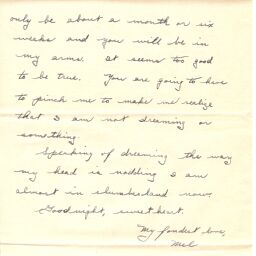 only be about a month or six
weeks and you will be in
my arms. It seems too good
to be true. You are going to have
to pinch me to make me realize
that I am not dreaming or
something.
Speaking of dreaming the way
my head is nodding I am
almost in slumberland now.
Goodnight, sweetheart.
My fondest love,
Mel